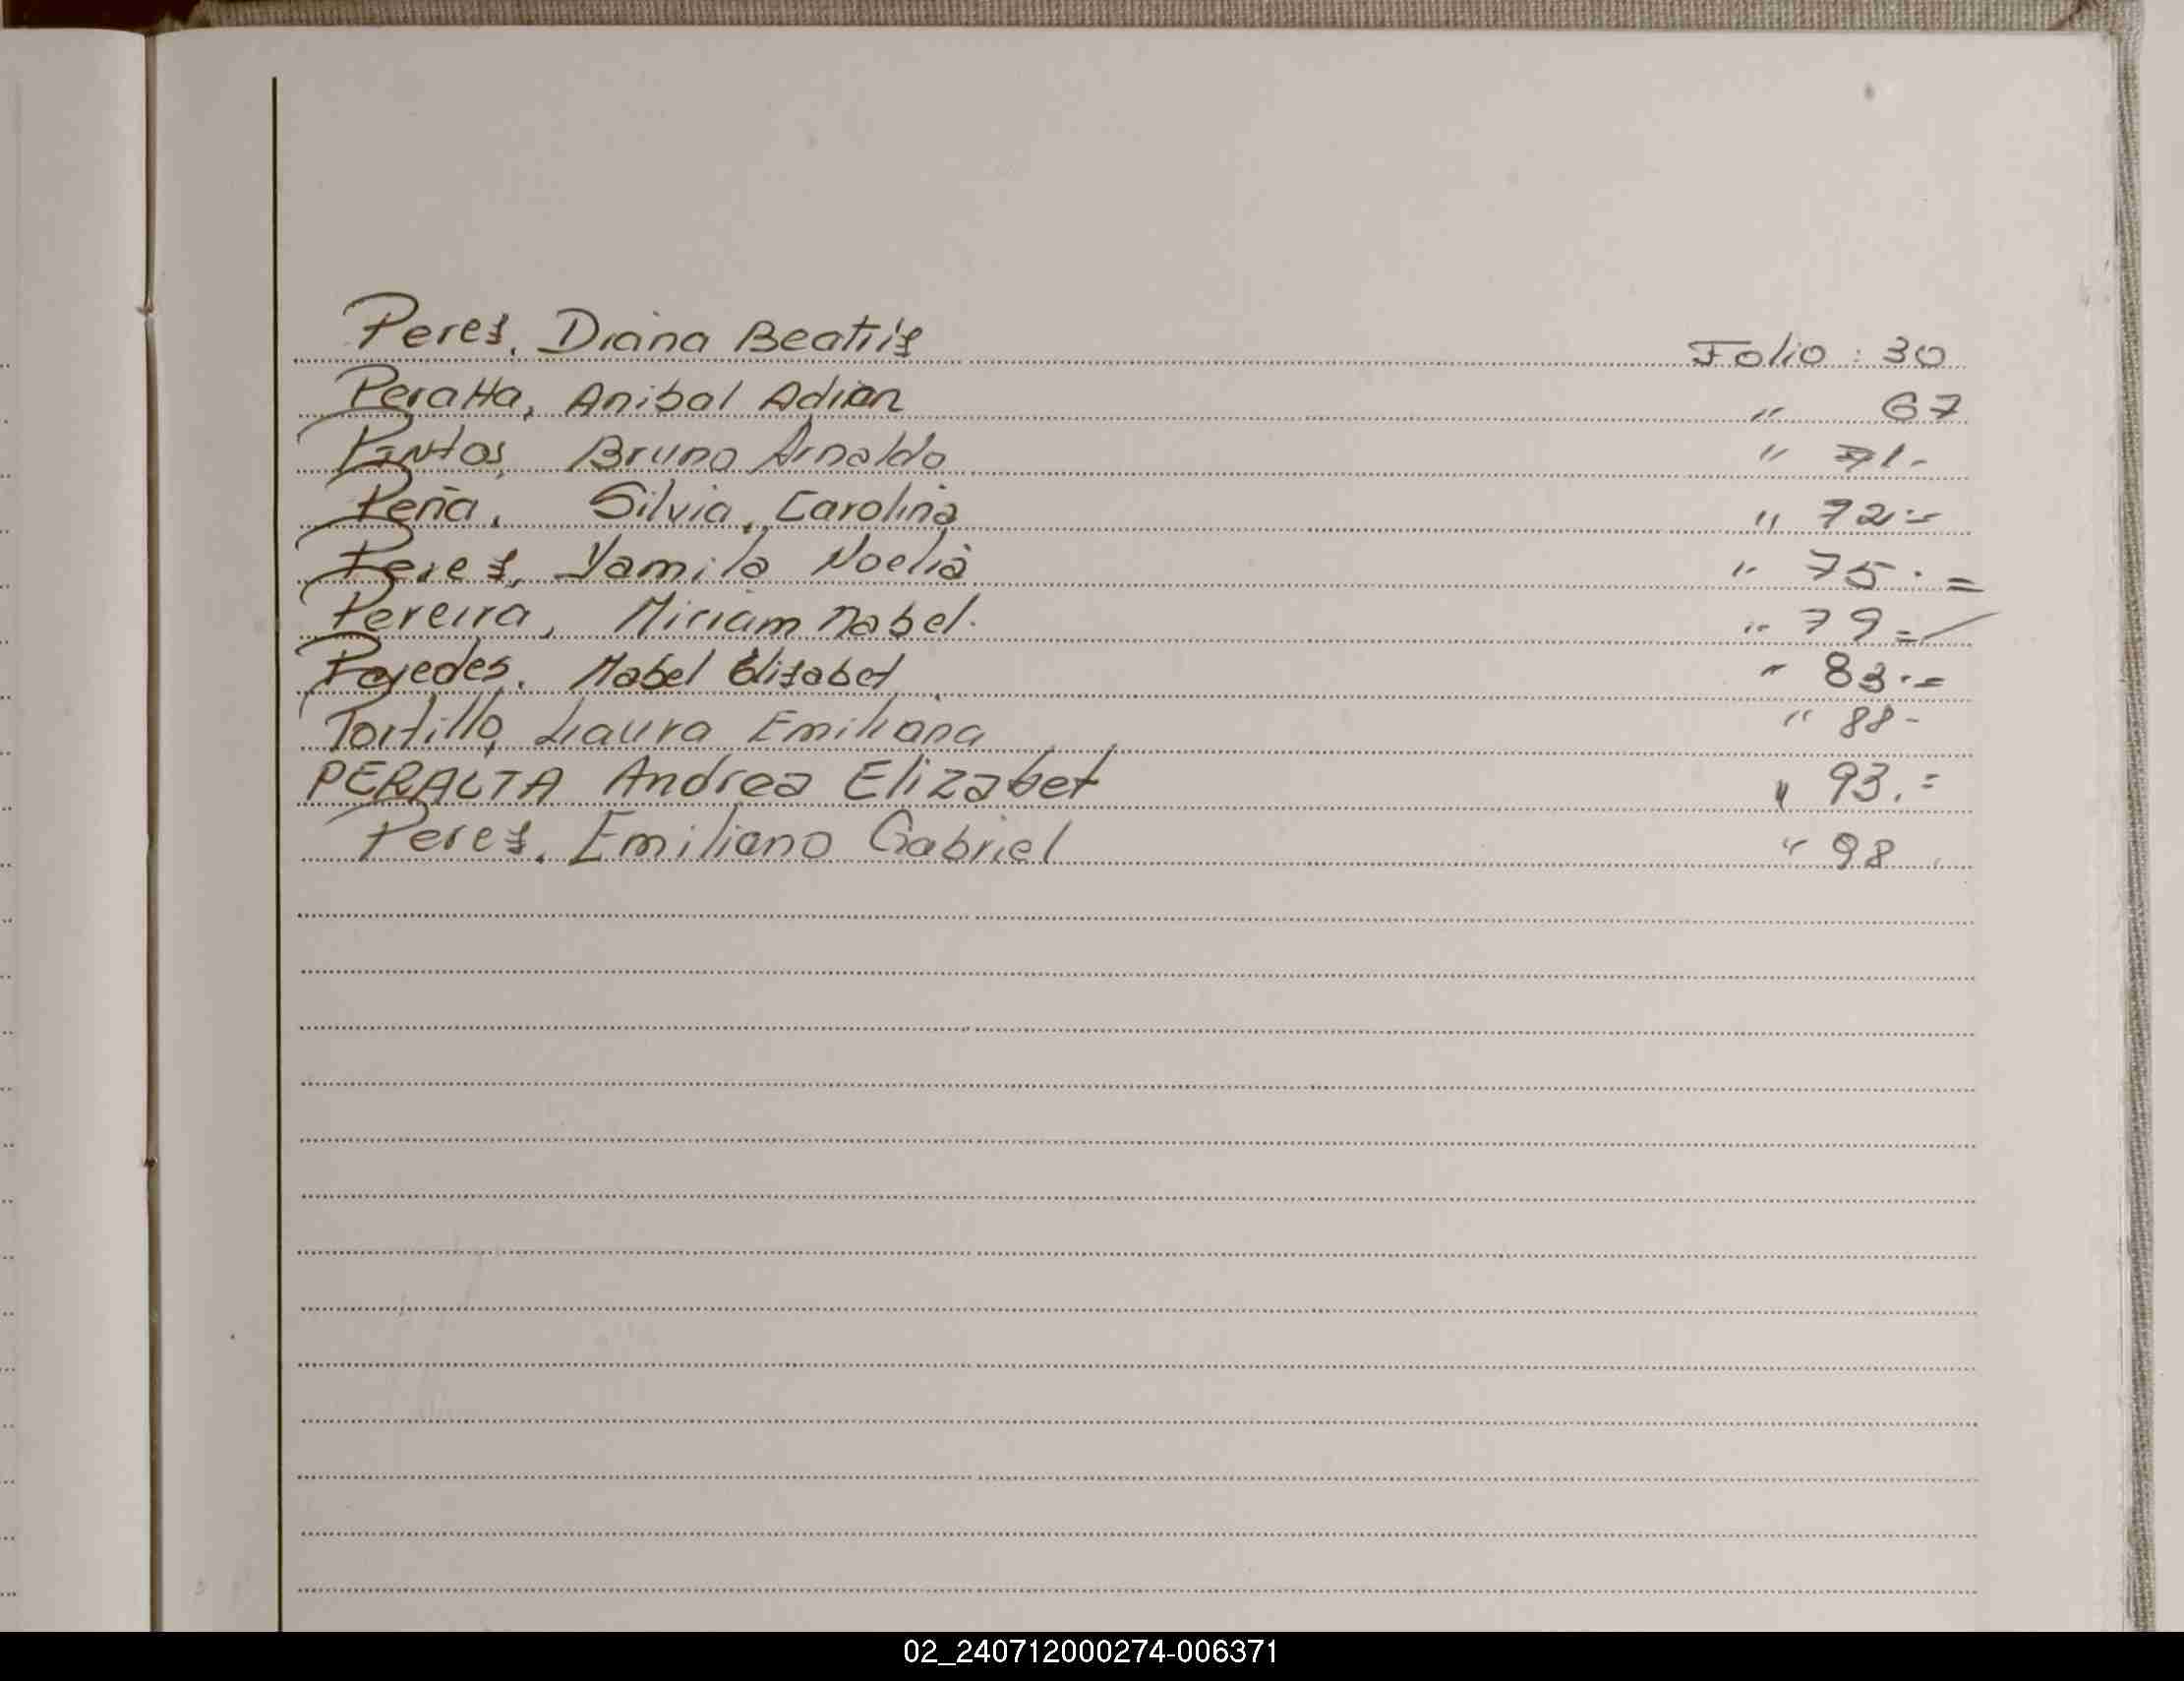 Peres, Diana Beatris Folio: 30
Peralta, Anibal Adrian " 67
Pintos, Bruno Arnaldo " 71.-
Peña, Silvia, Carolina " 72.=
Peres, Yamila Noelia " 75.=
Pereira, Miriam Mabel. " 79=
Paredes, Mabel Elisabet " 83.=
Portillo, Laura Emiliana " 88-
PERALTA Andrea Elizabet " 93.=
Peres, Emiliano Gabriel " 98.
02_240712000274-006371